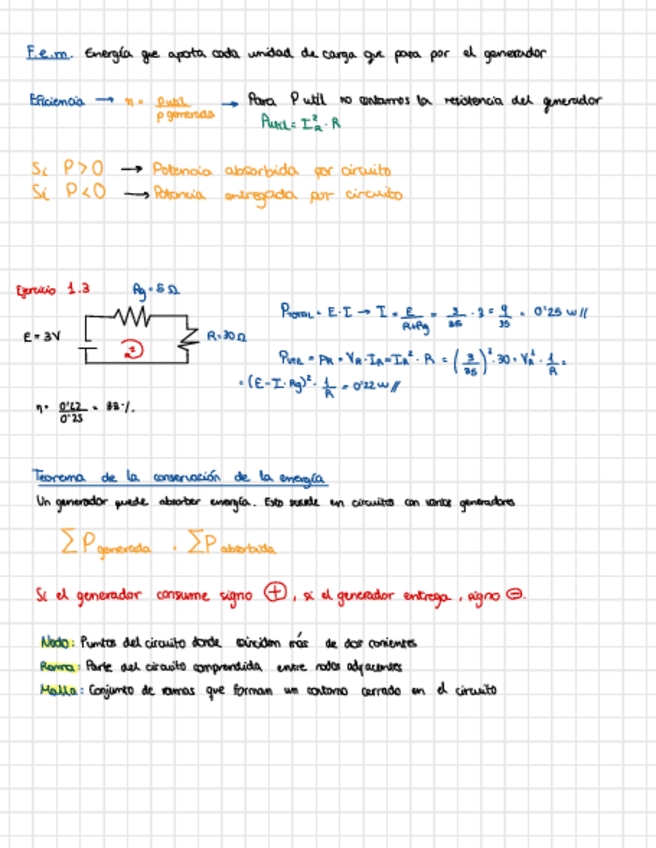 F.e.m. Energía que aporta cada unidad de carga que pasa por el generador
Eficiencia → η = P util / P generada → Para P util no contamos la resistencia del generador
Putil = I²R · R
Si P > 0 → Potencia absorbida por circuito
Si P < 0 → Potencia entregada por circuito
Ejercicio 1.3
Rg = 5 Ω
E = 3V
R = 30 Ω
PTOTAL = E · I → I = E / R+Rg = 3/35 · 3 = 9/35 = 0'25 w //
PUTIL = PR = VR · IR = IR² · R = (3/35)² · 30 = VR² · 1/R =
= (E - I · Rg)² · 1/R = 0'22 w //
η = 0'22 / 0'25 = 88 %.
Teorema de la conservación de la energía
Un generador puede absorber energía. Esto sucede en circuitos con varios generadores
∑P generada = ∑P absorbida
Si el generador consume signo ⊕, si el generador entrega, signo ⊖.
Nodo: Puntos del circuito donde coinciden más de dos corrientes
Rama: Parte del circuito comprendida entre nodos adyacentes
Malla: Conjunto de ramas que forman un contorno cerrado en el circuito